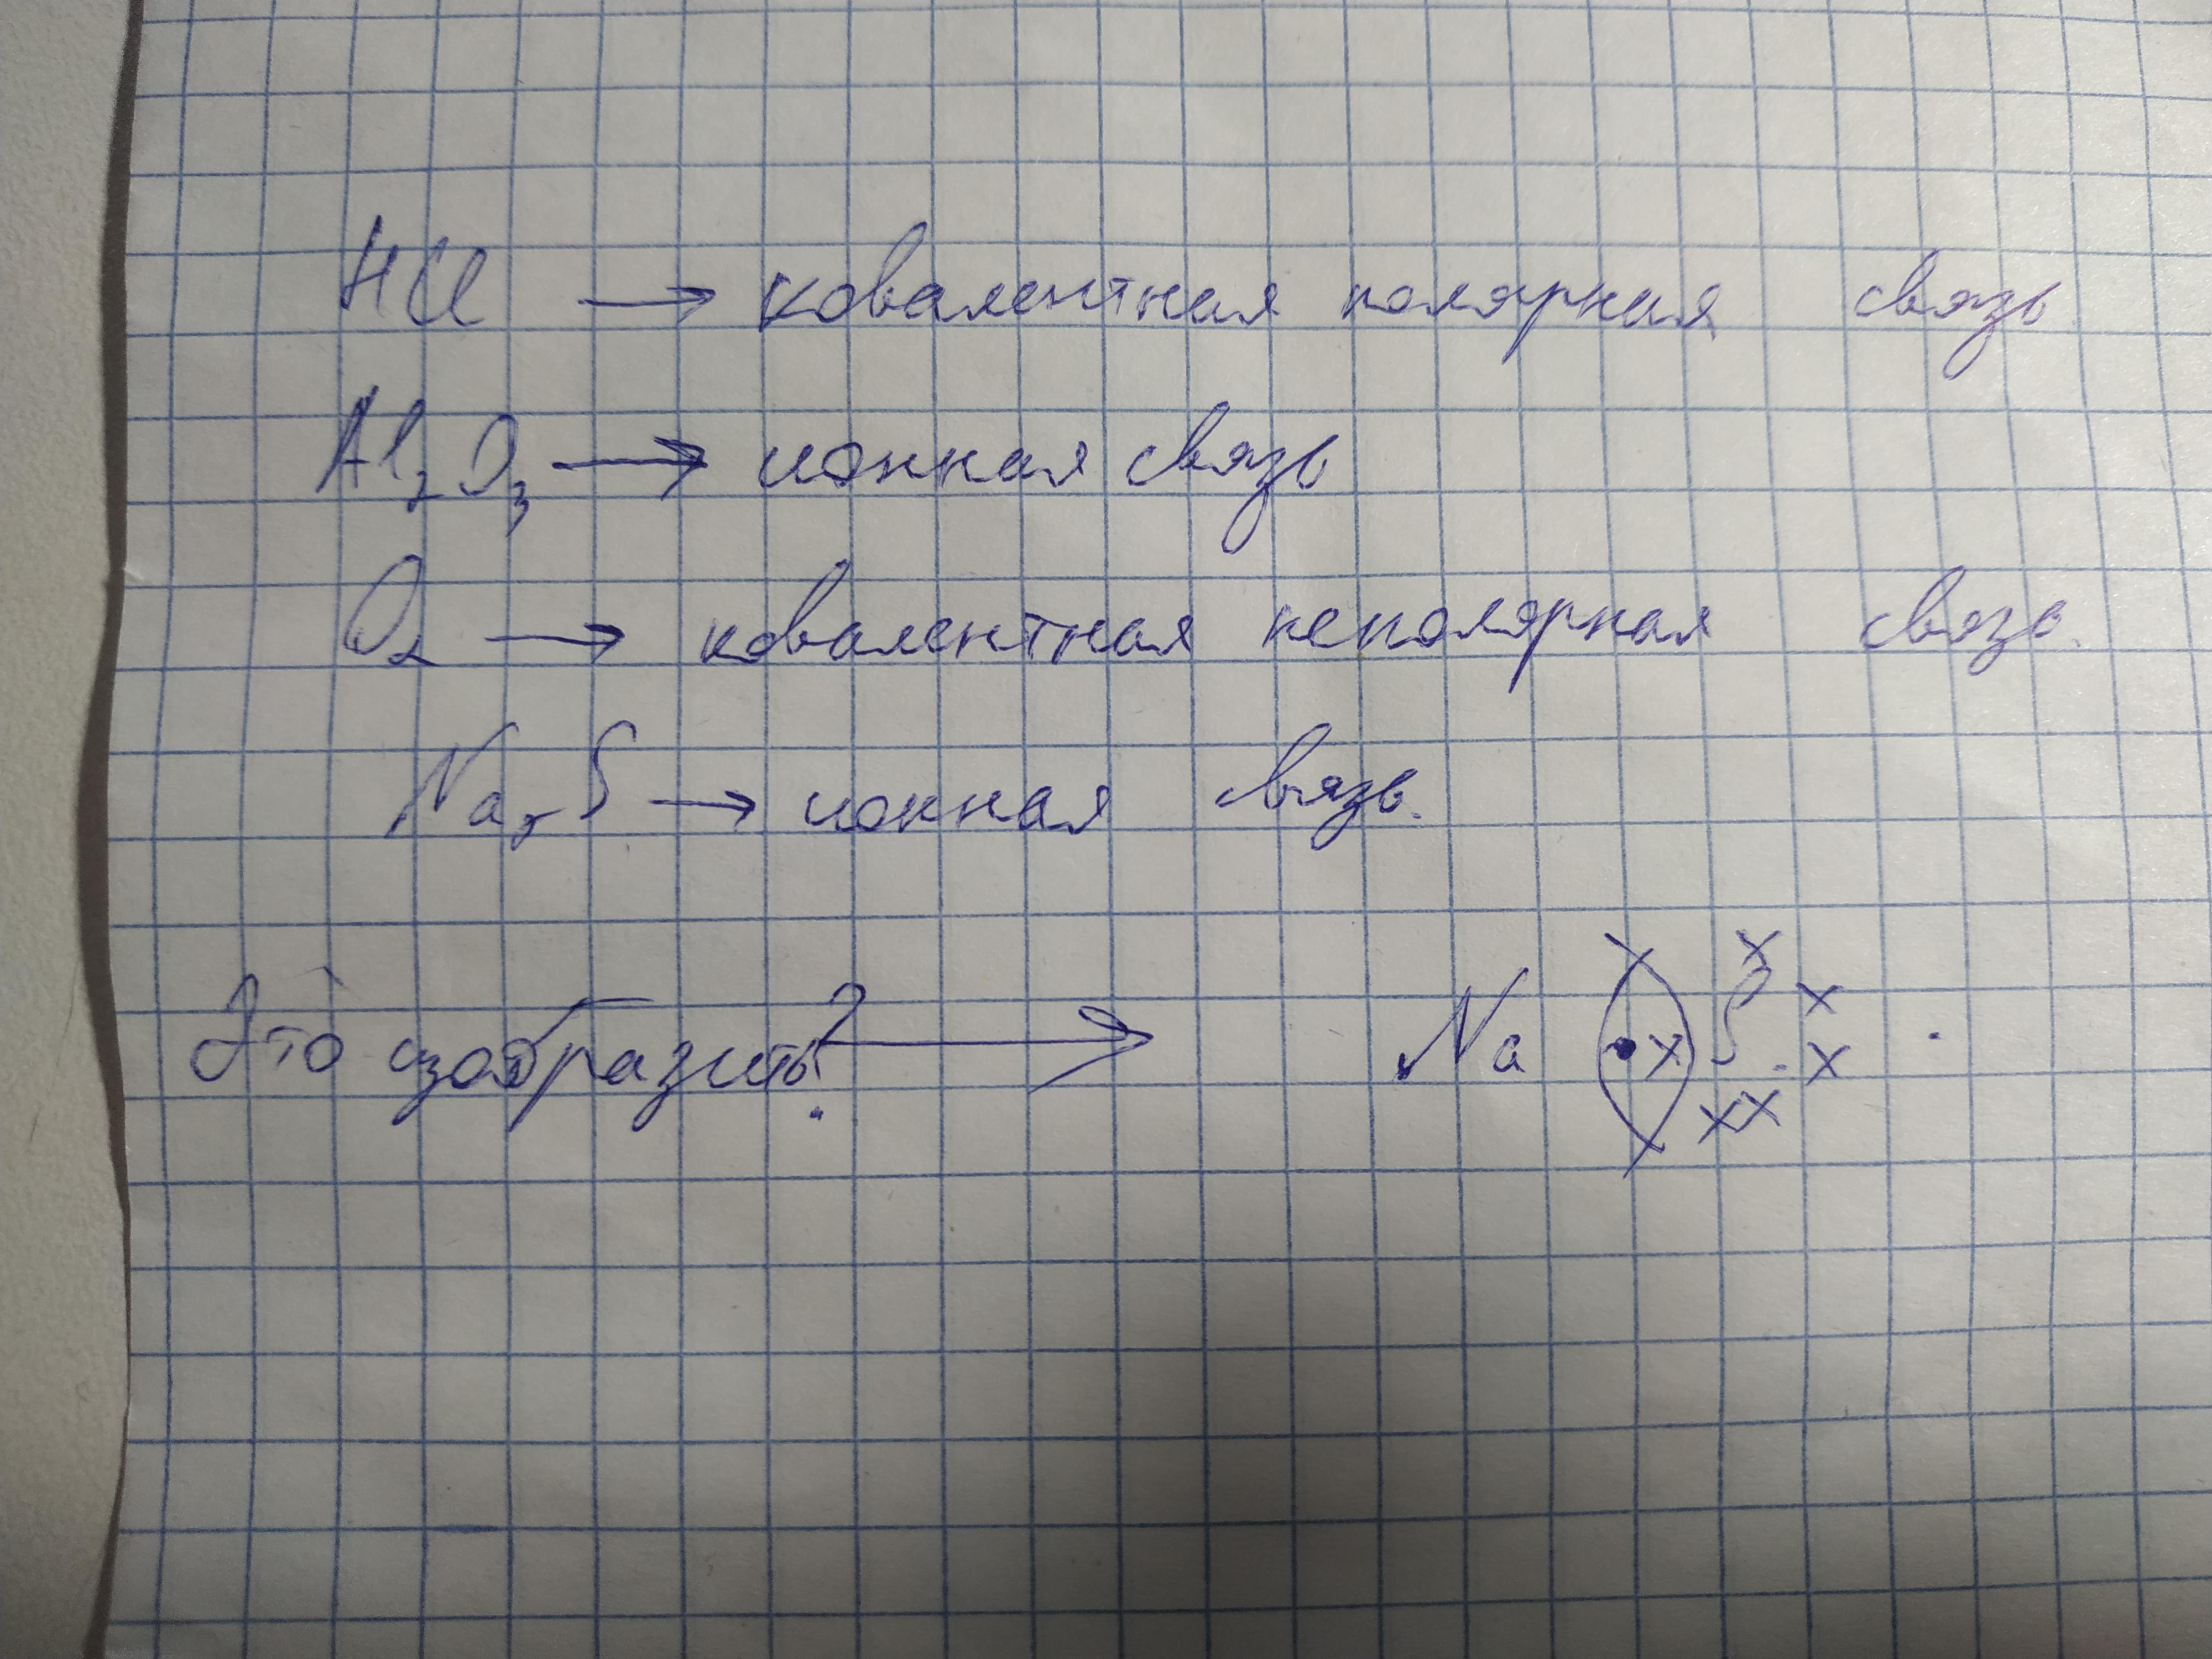 HCl → ковалентная полярная связь
Al₂O₃ → ионная связь
O₂ → ковалентная неполярная связь.
Na₂S → ионная связь.
Это изобразить? → Na • x S x x x x x